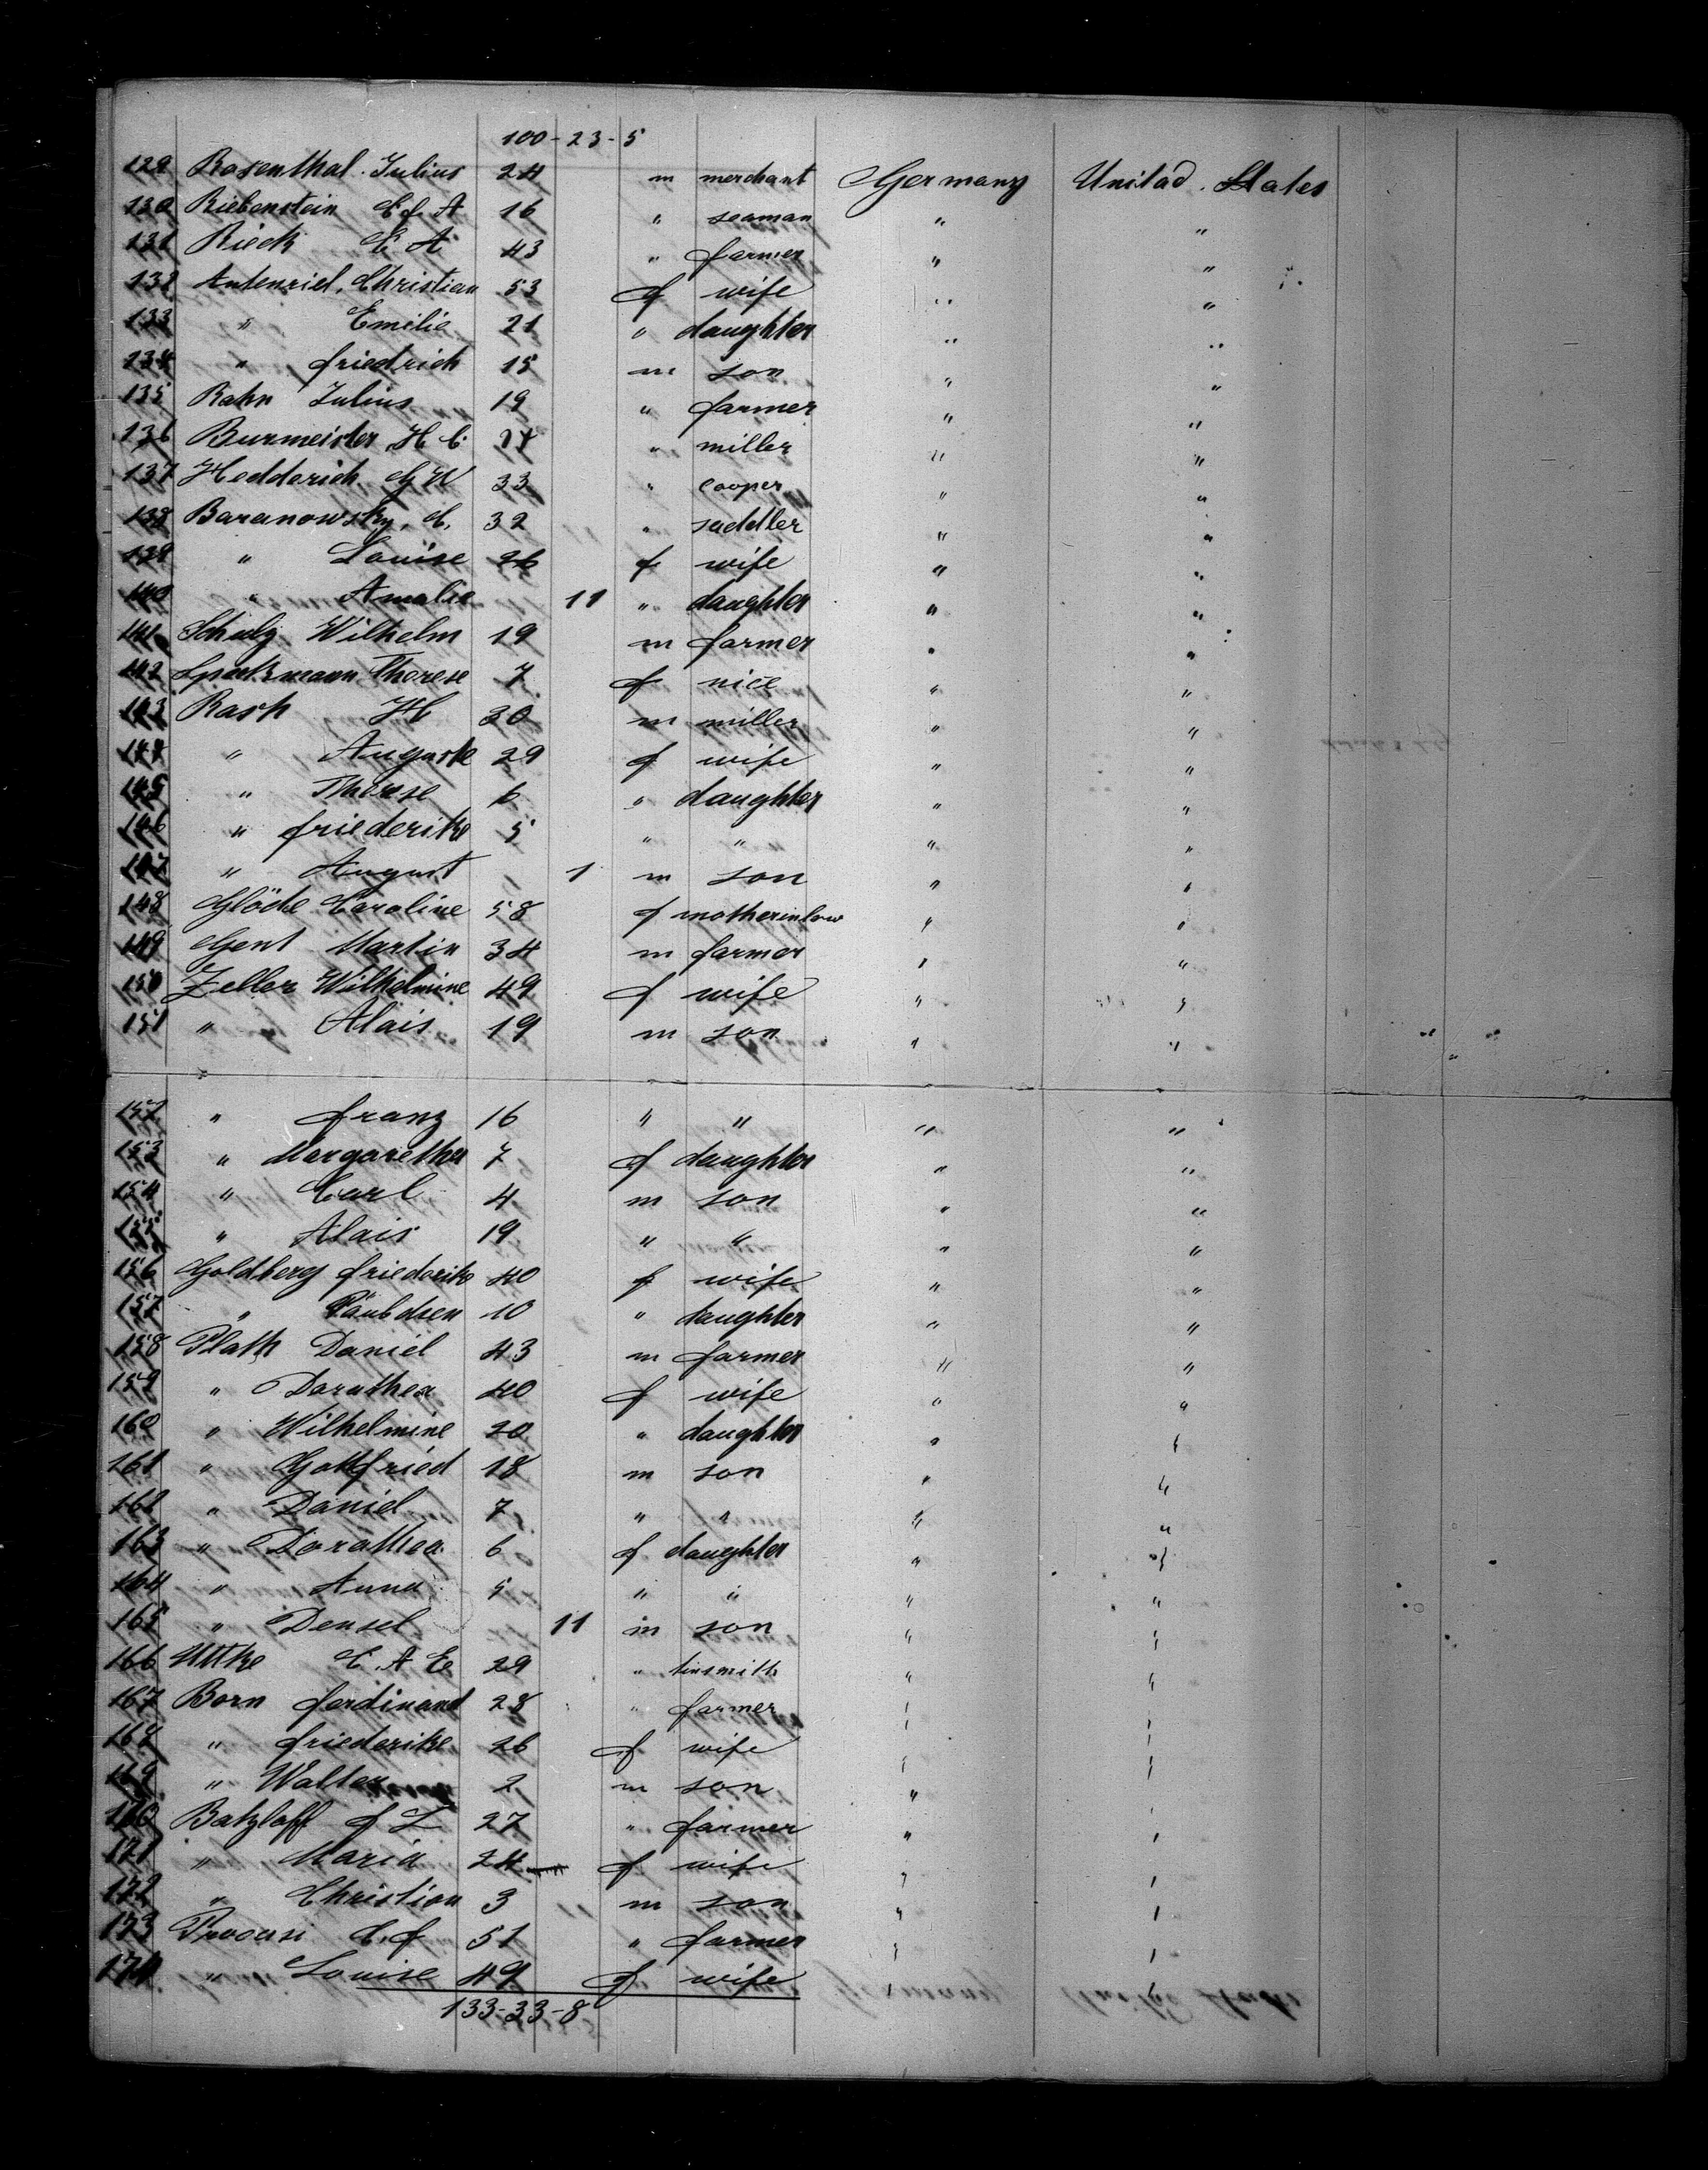 100-23-5
129 Rosenthal Julius 24 m merchant Germany Unitad States
130 Riebenstein C f A 16 " seaman " "
131 Rieck C A 43 " farmer " "
132 Antenriel, Christian 53 f wife " "
133 " Emilie 21 " daughter " "
134 " friedrich 15 m son " "
135 Rahn Julius 19 " farmer " "
136 Burmeister H C " miller " "
137 Hedderich G W 33 " cooper " "
138 Baranowsky, C. 32 " saddler " "
139 " Louise 26 f wife " "
140 " Amalie 11 " daughter " "
141 Schulz Wilhelm 19 m farmer " "
142 Therese 7 f nice " "
143 Rash H 30 m miller " "
144 " Auguste 29 f wife " "
145 " Therese 6 " daughter " "
146 " friederike 5 " " " "
147 " August 1 m son " "
148 Glöde Caroline 58 f motherinlaw " "
149 Gent Martin 34 m farmer " "
150 Zeller Wilhelmine 49 f wife " "
151 " Alais 19 m son " "
152 " franz 16 " " " "
153 " Margarethe 7 f daughter " "
154 " Carl 4 m son " "
155 " Alais 19 " " " "
156 Goldberg friederike 40 f wife " "
157 " 10 " daughter " "
158 Plath Daniel 43 m farmer " "
159 " Dorothea 40 f wife " "
160 " Wilhelmine 20 " daughter " "
161 " Gottfried 18 m son " "
162 " Daniel 7 " " " "
163 " Dorothea 6 f daughter " "
164 " Anna 5 " " " "
165 " Densel 11 m son " "
166 Uttke C A E 29 " tinsmith " "
167 Born ferdinand 28 " farmer " "
168 " friederike 26 f wife " "
169 " Walter 2 m son " "
170 Batzlaff f L 27 " farmer " "
171 " Maria 24 f wife " "
172 " Christian 3 m son " "
173 C. f 51 " farmer " "
174 " Louise 49 f wife " "
133-33-8